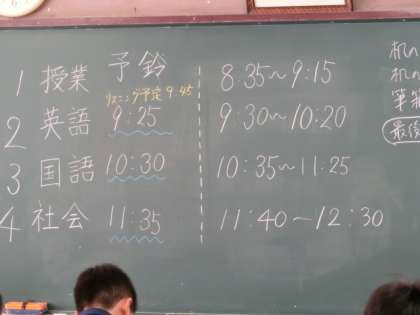 予鈴
1 授業 8:35~9:15
リスニング予定 9:45
2 英語 9:25 9:30~10:20
3 国語 10:30 10:35~11:25
4 社会 11:35 11:40~12:30
机
机
筆
最